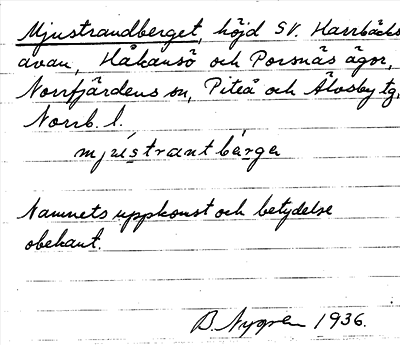 Mjustrandberget, höjd SV. Harrbäcks-
avan, Håkansö och Porsnäs ägor,
Norrfjärdens sn, Piteå och Älvsby tg,
Norrb. l.
mjustrantbärge
Namnets uppkomst och betydelse
obekant.
B. Nygren 1936.